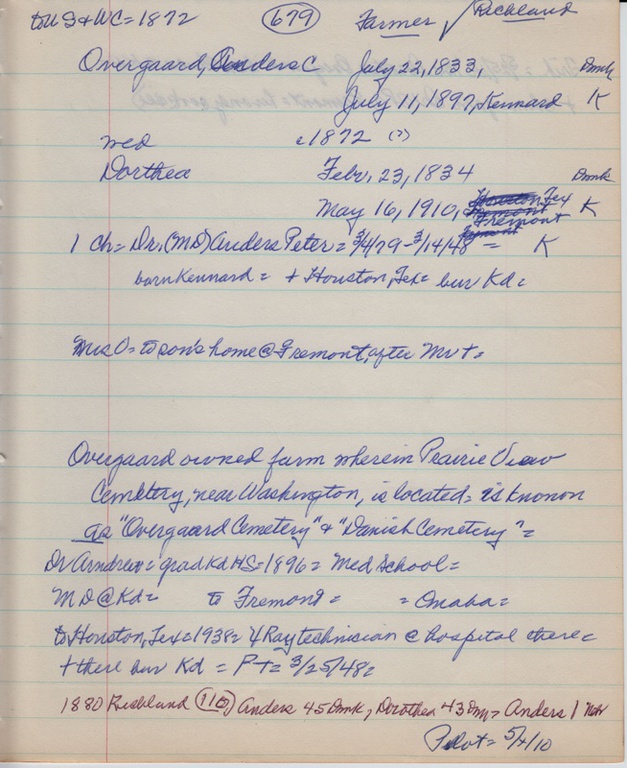 to U S & WC = 1872 679 Farmer √ Richland
Overgaard, Anders C July 22, 1833, Dmk
July 11, 1897, Kennard K
med c 1872 (?)
Dorthea Febr. 23, 1834 Dmk
May 16, 1910, Houston Tex Fremont K
1 ch = Dr. (MD) Anders Peter = 3/4/79 - 3/14/48 = K
born Kennard = + Houston, Tex = bur Kd =
Mrs O = to son's home @ Fremont, after Mr + =
Overgaard owned farm wherein Prairie View
Cemetery, near Washington, is located = is known
as "Overgaard Cemetery" & "Danish Cemetery" =
Dr = grad Kd HS = 1896 = Med School =
MD @ Kd = to Fremont = = Omaha =
to Houston, Tex = 1938 = X Ray technician @ hospital there =
+ there bur Kd = PT = 3/25/48 =
1880 Richland (110) Anders 45 Dmk, Dorothea 43 Dmk = Anders 1 Nebr
Pilot = 5/ /10